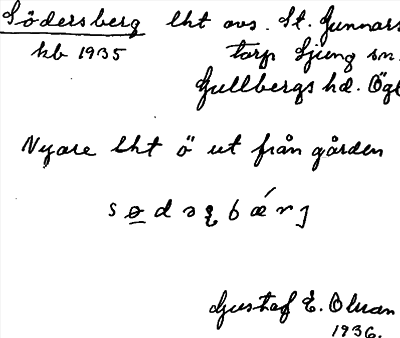 Södersberg lht avs. St. Gunnars
kb 1935 torp Ljung sn.
Gullbergs hd. Ög
Nyare lht ö ut från gården
Gustaf E. Olvan
1936.